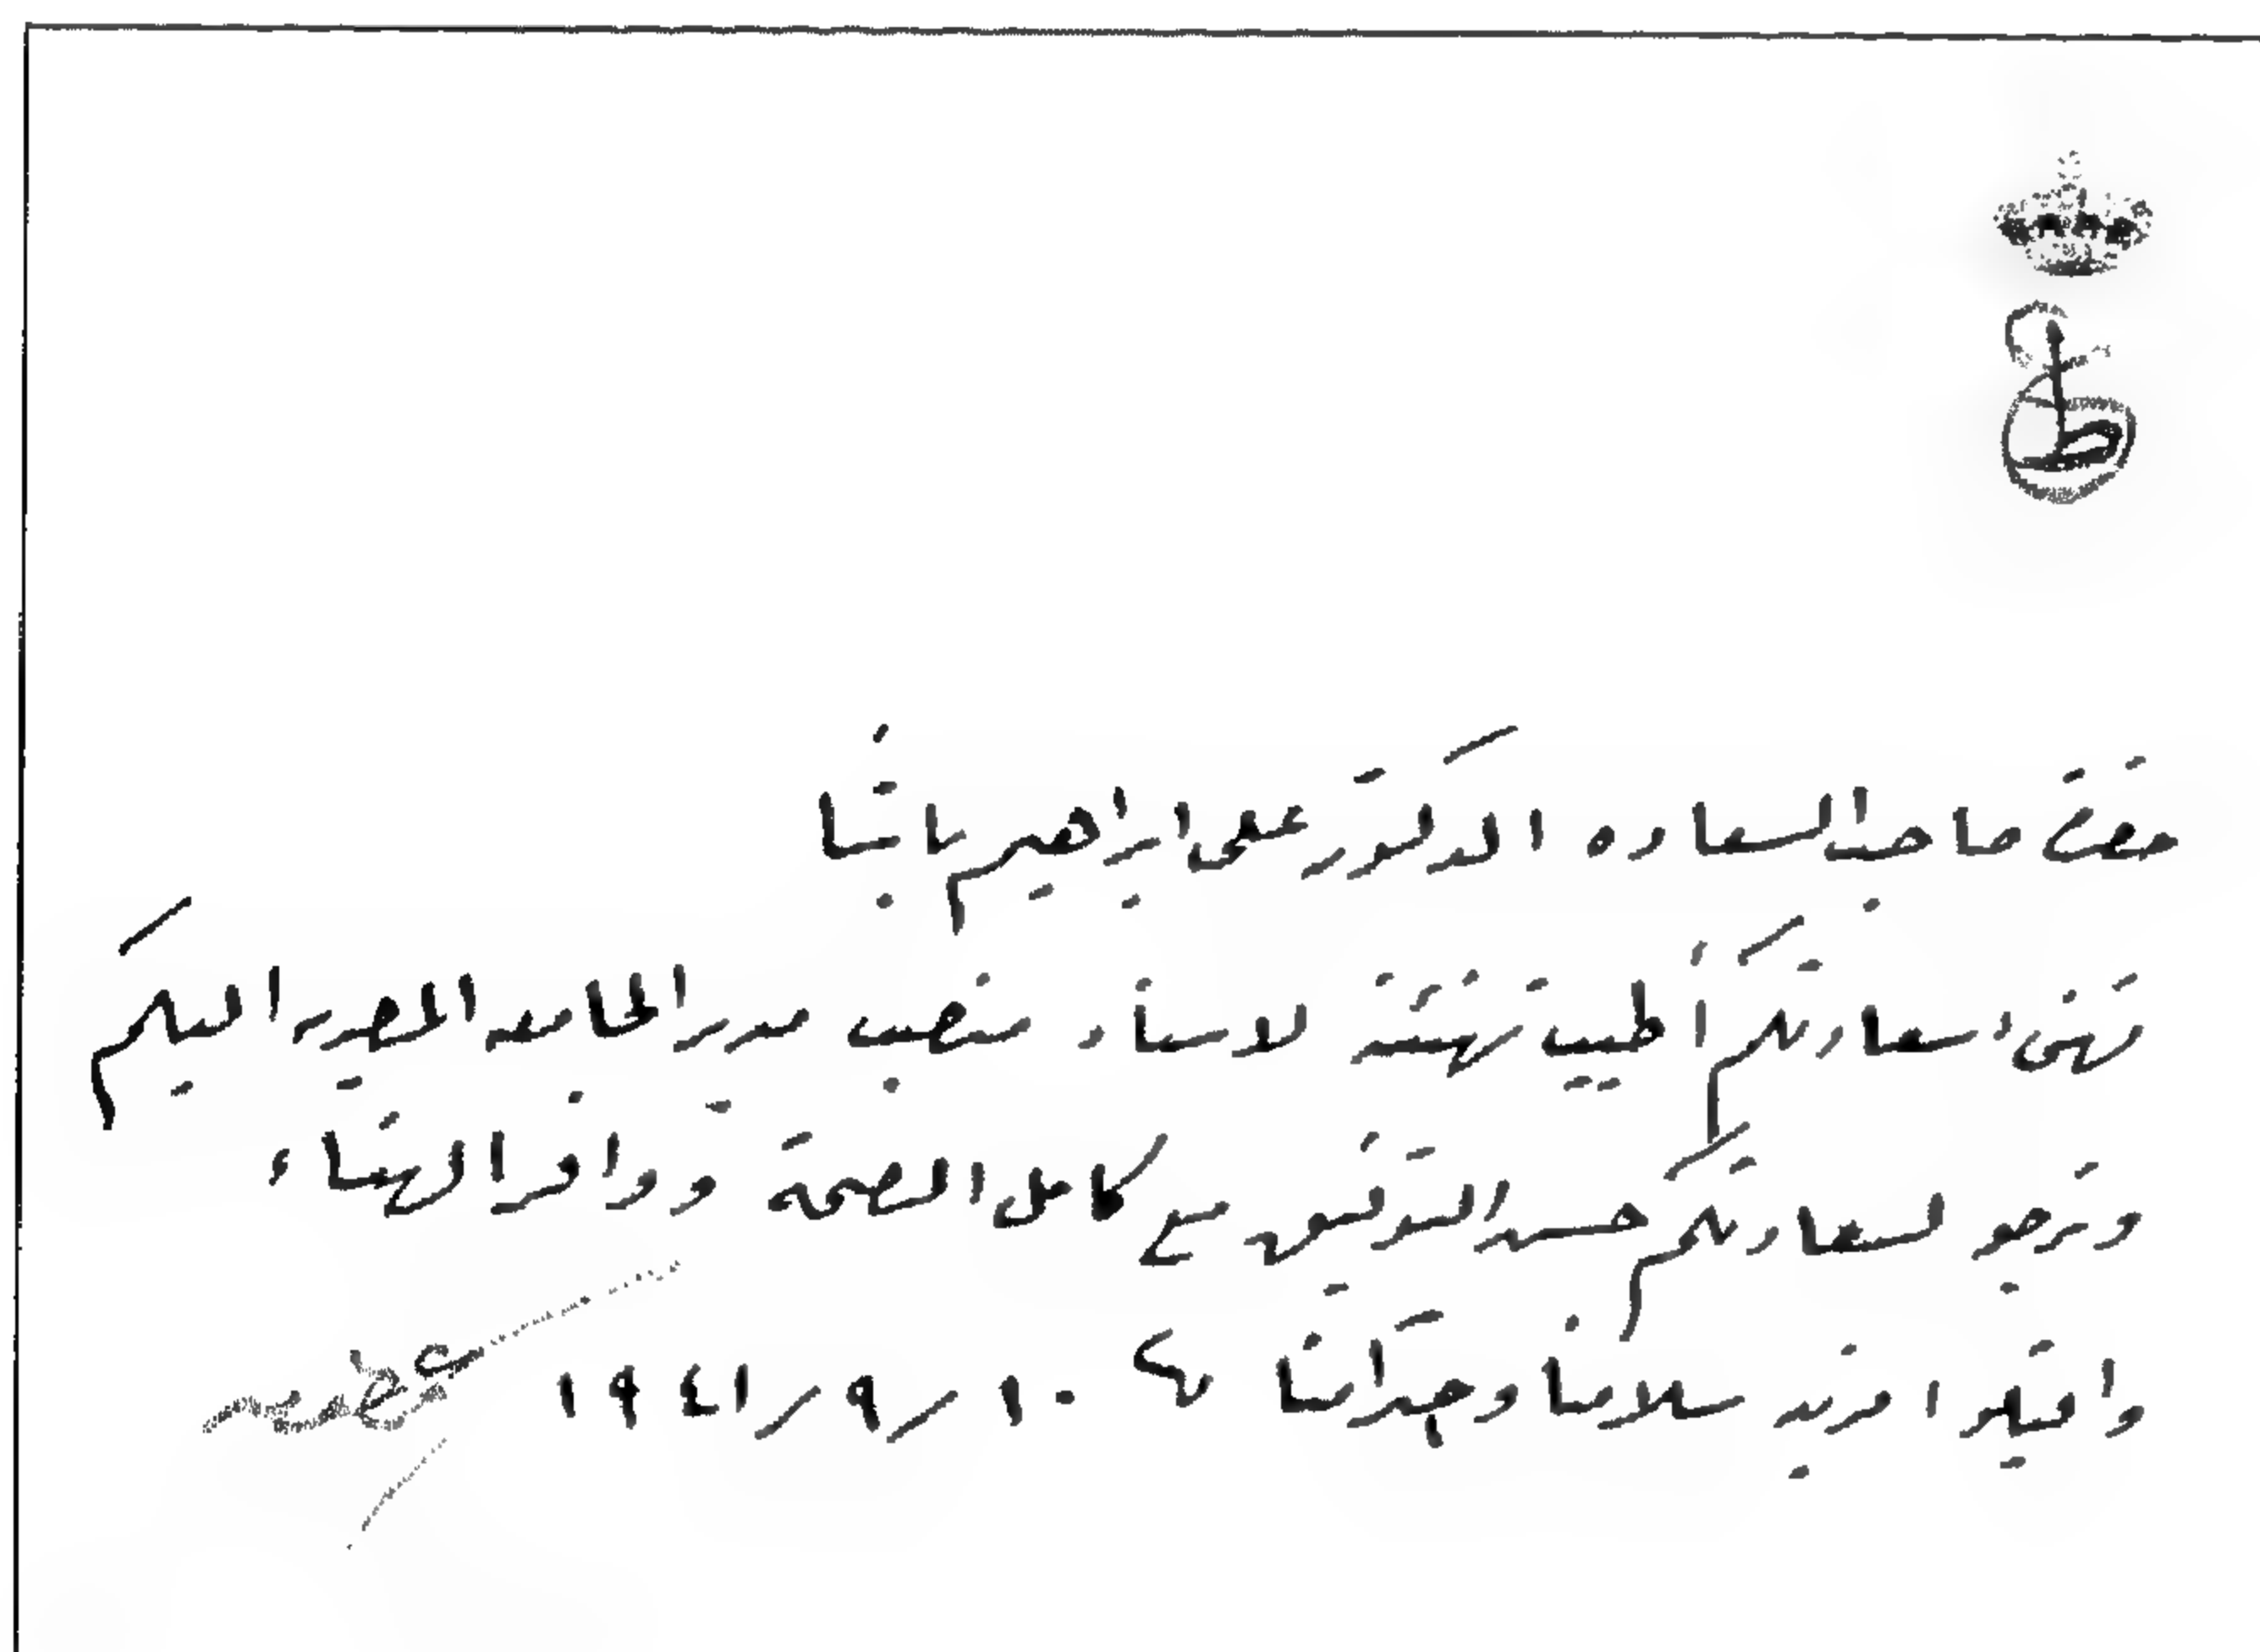 حضرة صاحب السعاده الدكتور على ابراهيم باشا
نهنىء سعادتكم أطيب تهنئة لاسناد منصب مدير الجامعه المصريه اليكم
ونرجو لسعادتكم حسن التوفيق مع كامل الصحة ووافر الهناء
واقبلوا مزيد سلامنا وتحياتنا ١٠/٩/١٩٤١